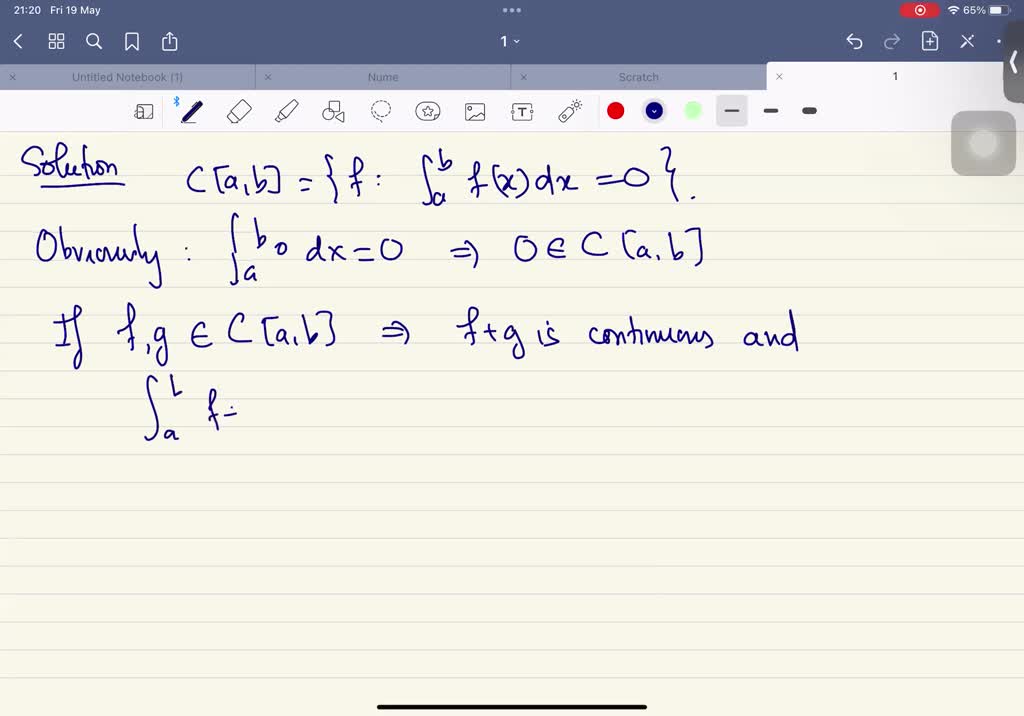 21:20 Fri 19 May
65%
1
Untitled Notebook (1)
Nume
Scratch
1
Solution C[a,b] = {f: ∫_a^b f(x) dx = 0}.
Obviously: ∫_a^b 0 dx = 0 ⇒ 0 ∈ C[a,b]
If f,g ∈ C[a,b] ⇒ f+g is continuous and
∫_a^b f=